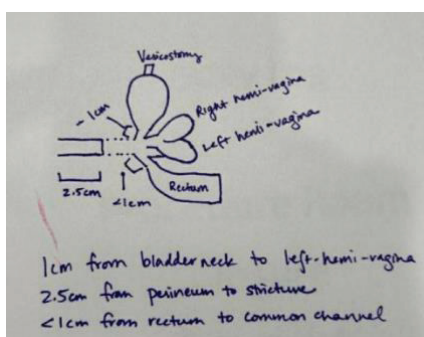 Vesicostomy
~1cm
Right hemi-vagina
Left hemi-vagina
Rectum
2.5cm
<1cm
1cm from bladder neck to left-hemi-vagina
2.5cm from perineum to stricture
<1cm from rectum to common channel